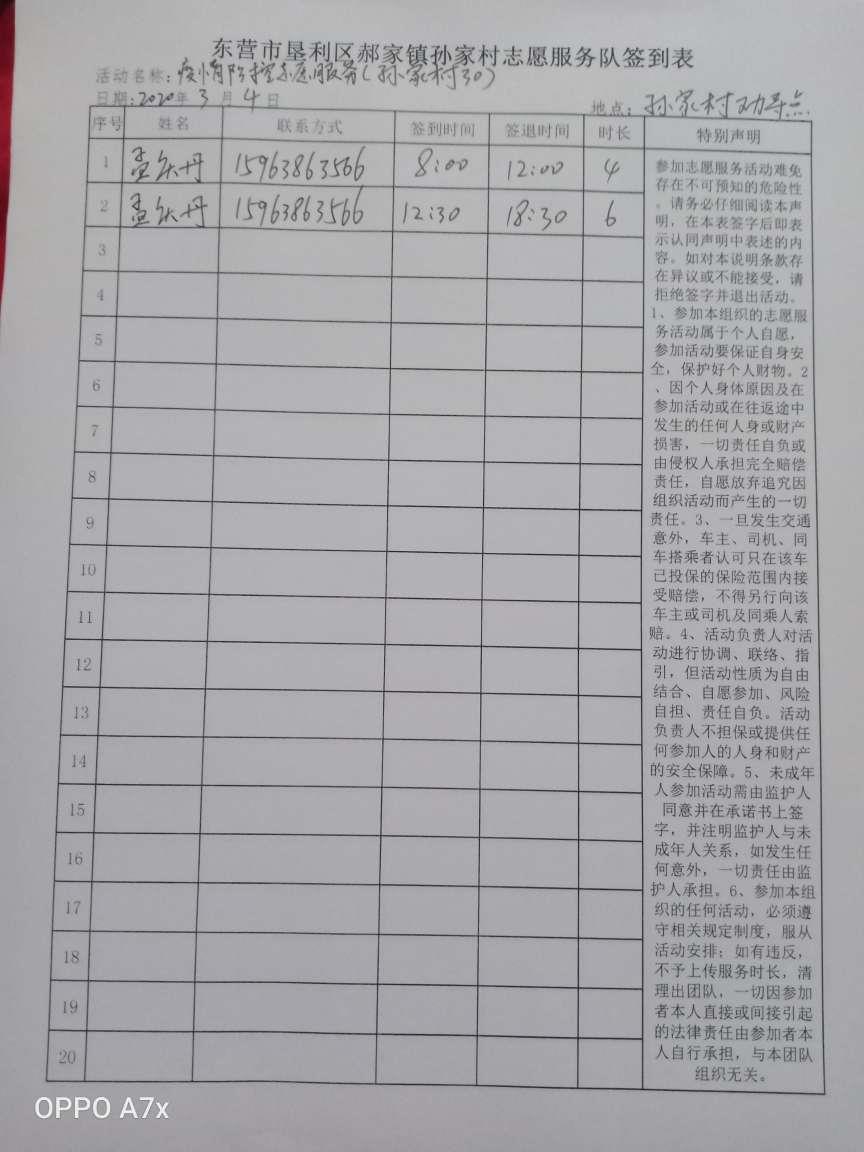 东营市垦利区郝家镇孙家村志愿服务队签到表
活动名称：疫情防控志愿服务（孙家村30）
日期：2020年3月4日
地点：孙家村劝导点
序号 姓名 联系方式 签到时间 签退时间 时长 特别声明
1 15963863566 8:00 12:00 4
2 15963863566 12:30 18:30 6
3
4
5
6
7
8
9
10
11
12
13
14
15
16
17
18
19
20
参加志愿服务活动难免
存在不可预知的危险性
。请务必仔细阅读本声
明，在本表签字后即表
示认同声明中表述的内
容。如对本说明条款存
在异议或不能接受，请
拒绝签字并退出活动。
1、参加本组织的志愿服
务活动属于个人自愿，
参加活动要保证自身安
全，保护好个人财物。2
、因个人身体原因及在
参加活动或在往返途中
发生的任何人身或财产
损害，一切责任自负或
由侵权人承担完全赔偿
责任，自愿放弃追究因
组织活动而产生的一切
责任。3、一旦发生交通
意外，车主、司机、同
车搭乘者认可只在该车
已投保的保险范围内接
受赔偿，不得另行向该
车主或司机及同乘人索
赔。4、活动负责人对活
动进行协调、联络、指
引，但活动性质为自由
结合、自愿参加、风险
自担、责任自负。活动
负责人不担保或提供任
何参加人的人身和财产
的安全保障。5、未成年
人参加活动需由监护人
同意并在承诺书上签
字，并注明监护人与未
成年人关系，如发生任
何意外，一切责任由监
护人承担。6、参加本组
织的任何活动，必须遵
守相关规定制度，服从
活动安排；如有违反，
不予上传服务时长，清
理出团队，一切因参加
者本人直接或间接引起
的法律责任由参加者本
人自行承担，与本团队
组织无关。
OPPO A7x